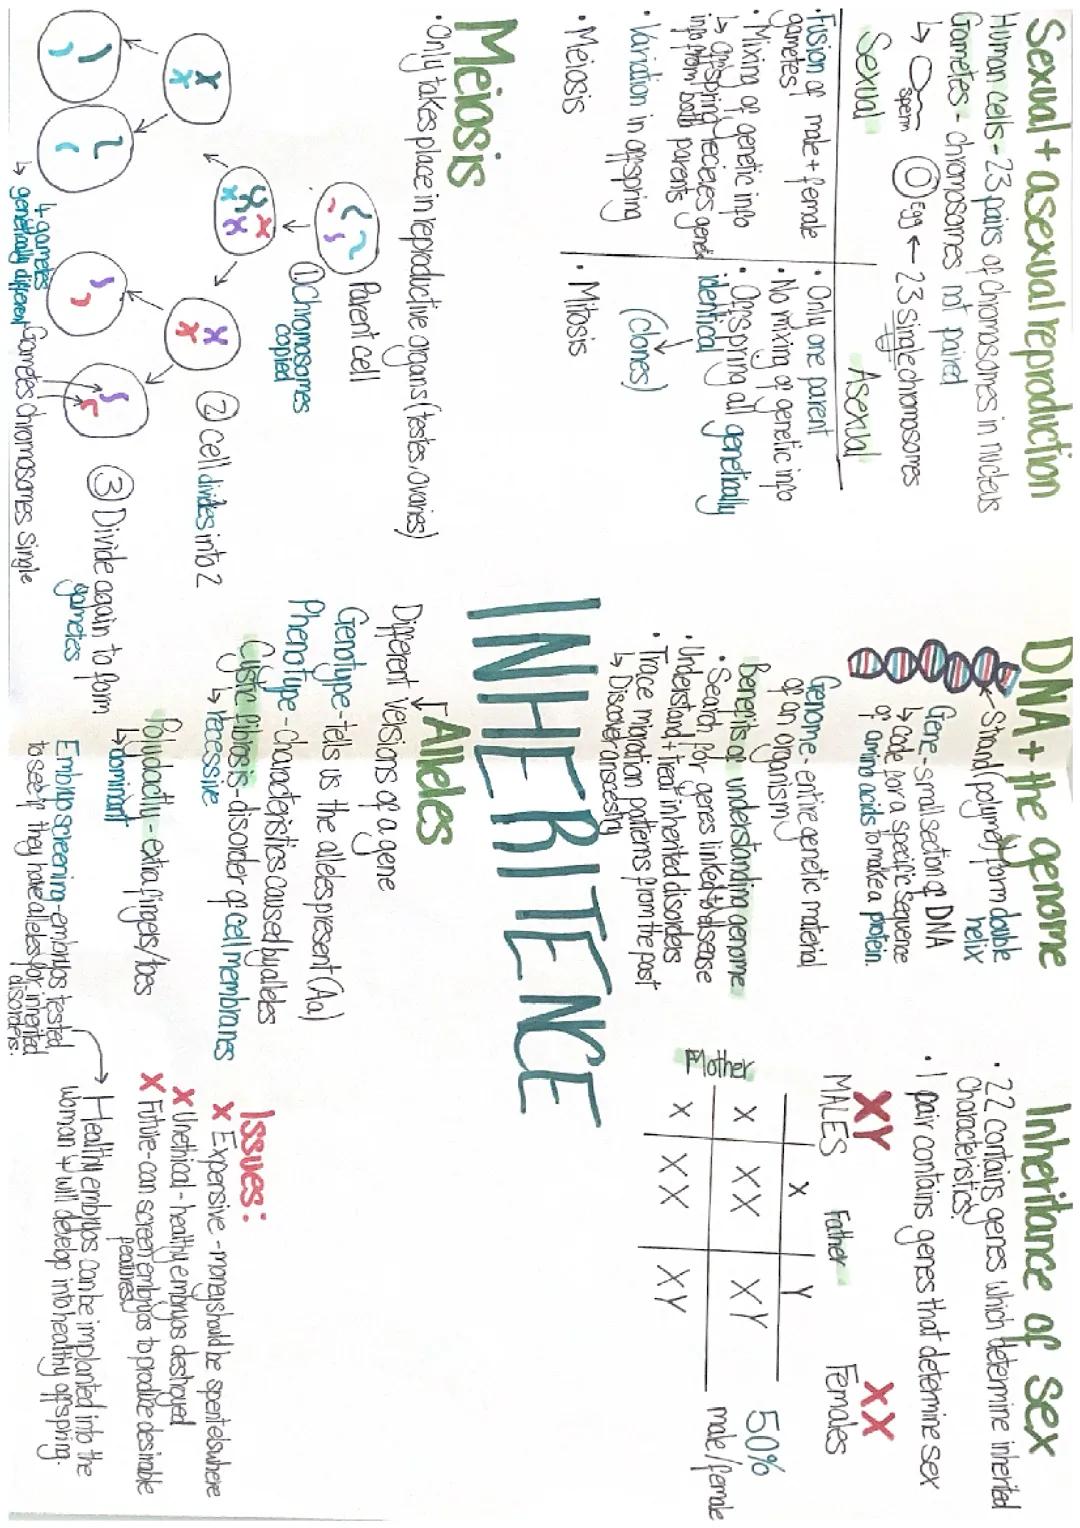 Sexual + asexual reproduction
Human cells - 23 pairs of chromosomes in nucleus
Gametes - chromosomes not paired
↳ sperm
Egg ← 23 single chromosomes
Sexual
Asexual
• Fusion of male + female
gametes
• Mixing of genetic info
↳ offspring recieves genetic
info from both parents
• Variation in offspring
• Meiosis
• Only one parent
• No mixing of genetic info
• Offspring all genetically
identical
(clones)
• Mitosis
Meiosis
• Only takes place in reproductive organs (testes, ovaries)
Parent cell
① Chromosomes
copied
② cell divides into 2
③ Divide again to form
gametes
4 gametes
↳ genetically different
Gametes chromosomes single
DNA + the genome
Strand (polymer) form double
helix
Gene - small section of DNA
↳ code for a specific sequence
of amino acids to make a protein.
Genome - entire genetic material
of an organism
Benefits of understanding genome
• Search for genes linked to disease
• Understand + treat inherited disorders
• Trace migration patterns from the past
↳ Discover anscestry
INHERITENCE
Alleles
Different versions of a gene
Genotype - tells us the alleles present (Aa)
Phenotype - characteristics caused by alleles
Cystic fibrosis - disorder of cell membranes
↳ recessive
Polydactily - extra fingers/toes
↳ dominant
Embryo screening - embryos tested
to see if they have alleles for inherited
disorders.
Inheritance of sex
• 22 contains genes which determine inherited
characteristics.
• 1 pair contains genes that determine sex
XY
MALES
XX
Females
Father
X Y
Mother
X XX XY
X XX XY
50%
male/female
Issues:
X Expensive - money should be spent elswhere
X Unethical - healthy embryos destroyed
X Future - can screen embryos to produce desirable
features.
→ Healthy embryos can be implanted into the
woman + will develop into healthy offspring.